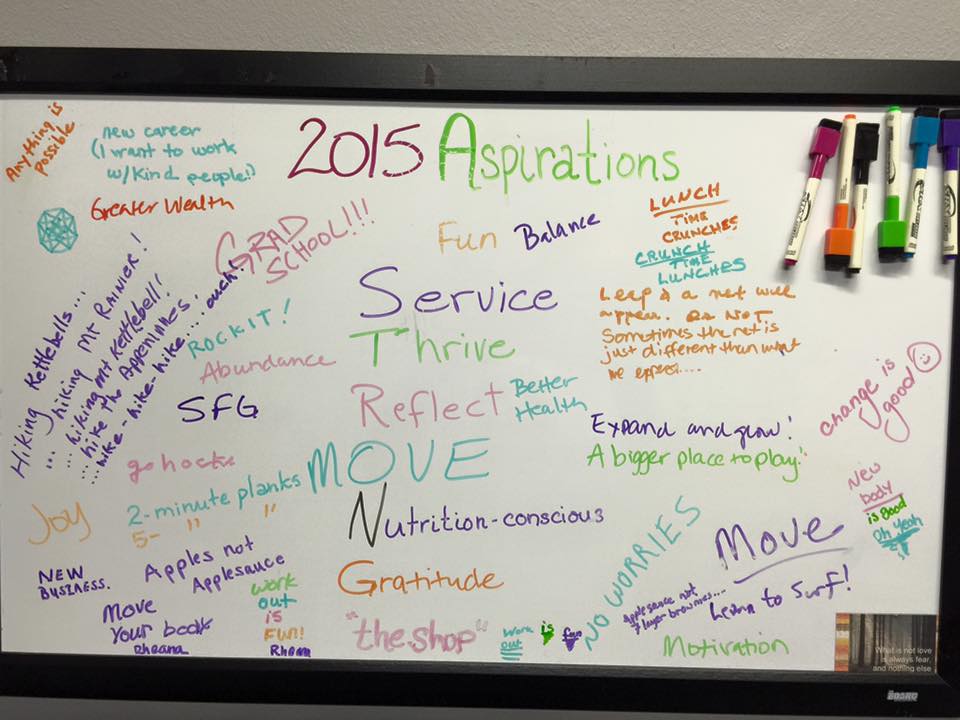 2015 Aspirations
Anything is
possible
new career
(I want to work
w/kind people!)
Greater Wealth
GRAD
SCHOOL!!!
Fun Balance
LUNCH
TIME
CRUNCHES
CRUNCH
TIME
LUNCHES
Hiking Kettlebells....
... hiking Mt RAINIER!
... hiking Mt Kettlebell!
... hike the Appenines.
... hike-hike-hike.... ouch.
ROCK IT!
Abundance
SFG
Service
Thrive
Reflect
Better
Health
MOVE
Nutrition-conscious
Gratitude
"the shop"
Leap & a net will
appear. OR NOT.
Sometimes the net is
just different than what
we expect....
change is
good
Expand and grow!
A bigger place to play!
go hock
Joy
2-minute planks
5- " "
NEW
BUSINESS.
Apples not
Applesauce
Move
Your body
Rheana
work
out
is
FUN!
Rheana
work
out
is
fun
NO WORRIES
Move
Applesauce not
7 layer brownies...
Learn to Surf!
Motivation
New
body
is Good
Oh Yeah
What is not love
is always fear,
and nothing else
BOARD